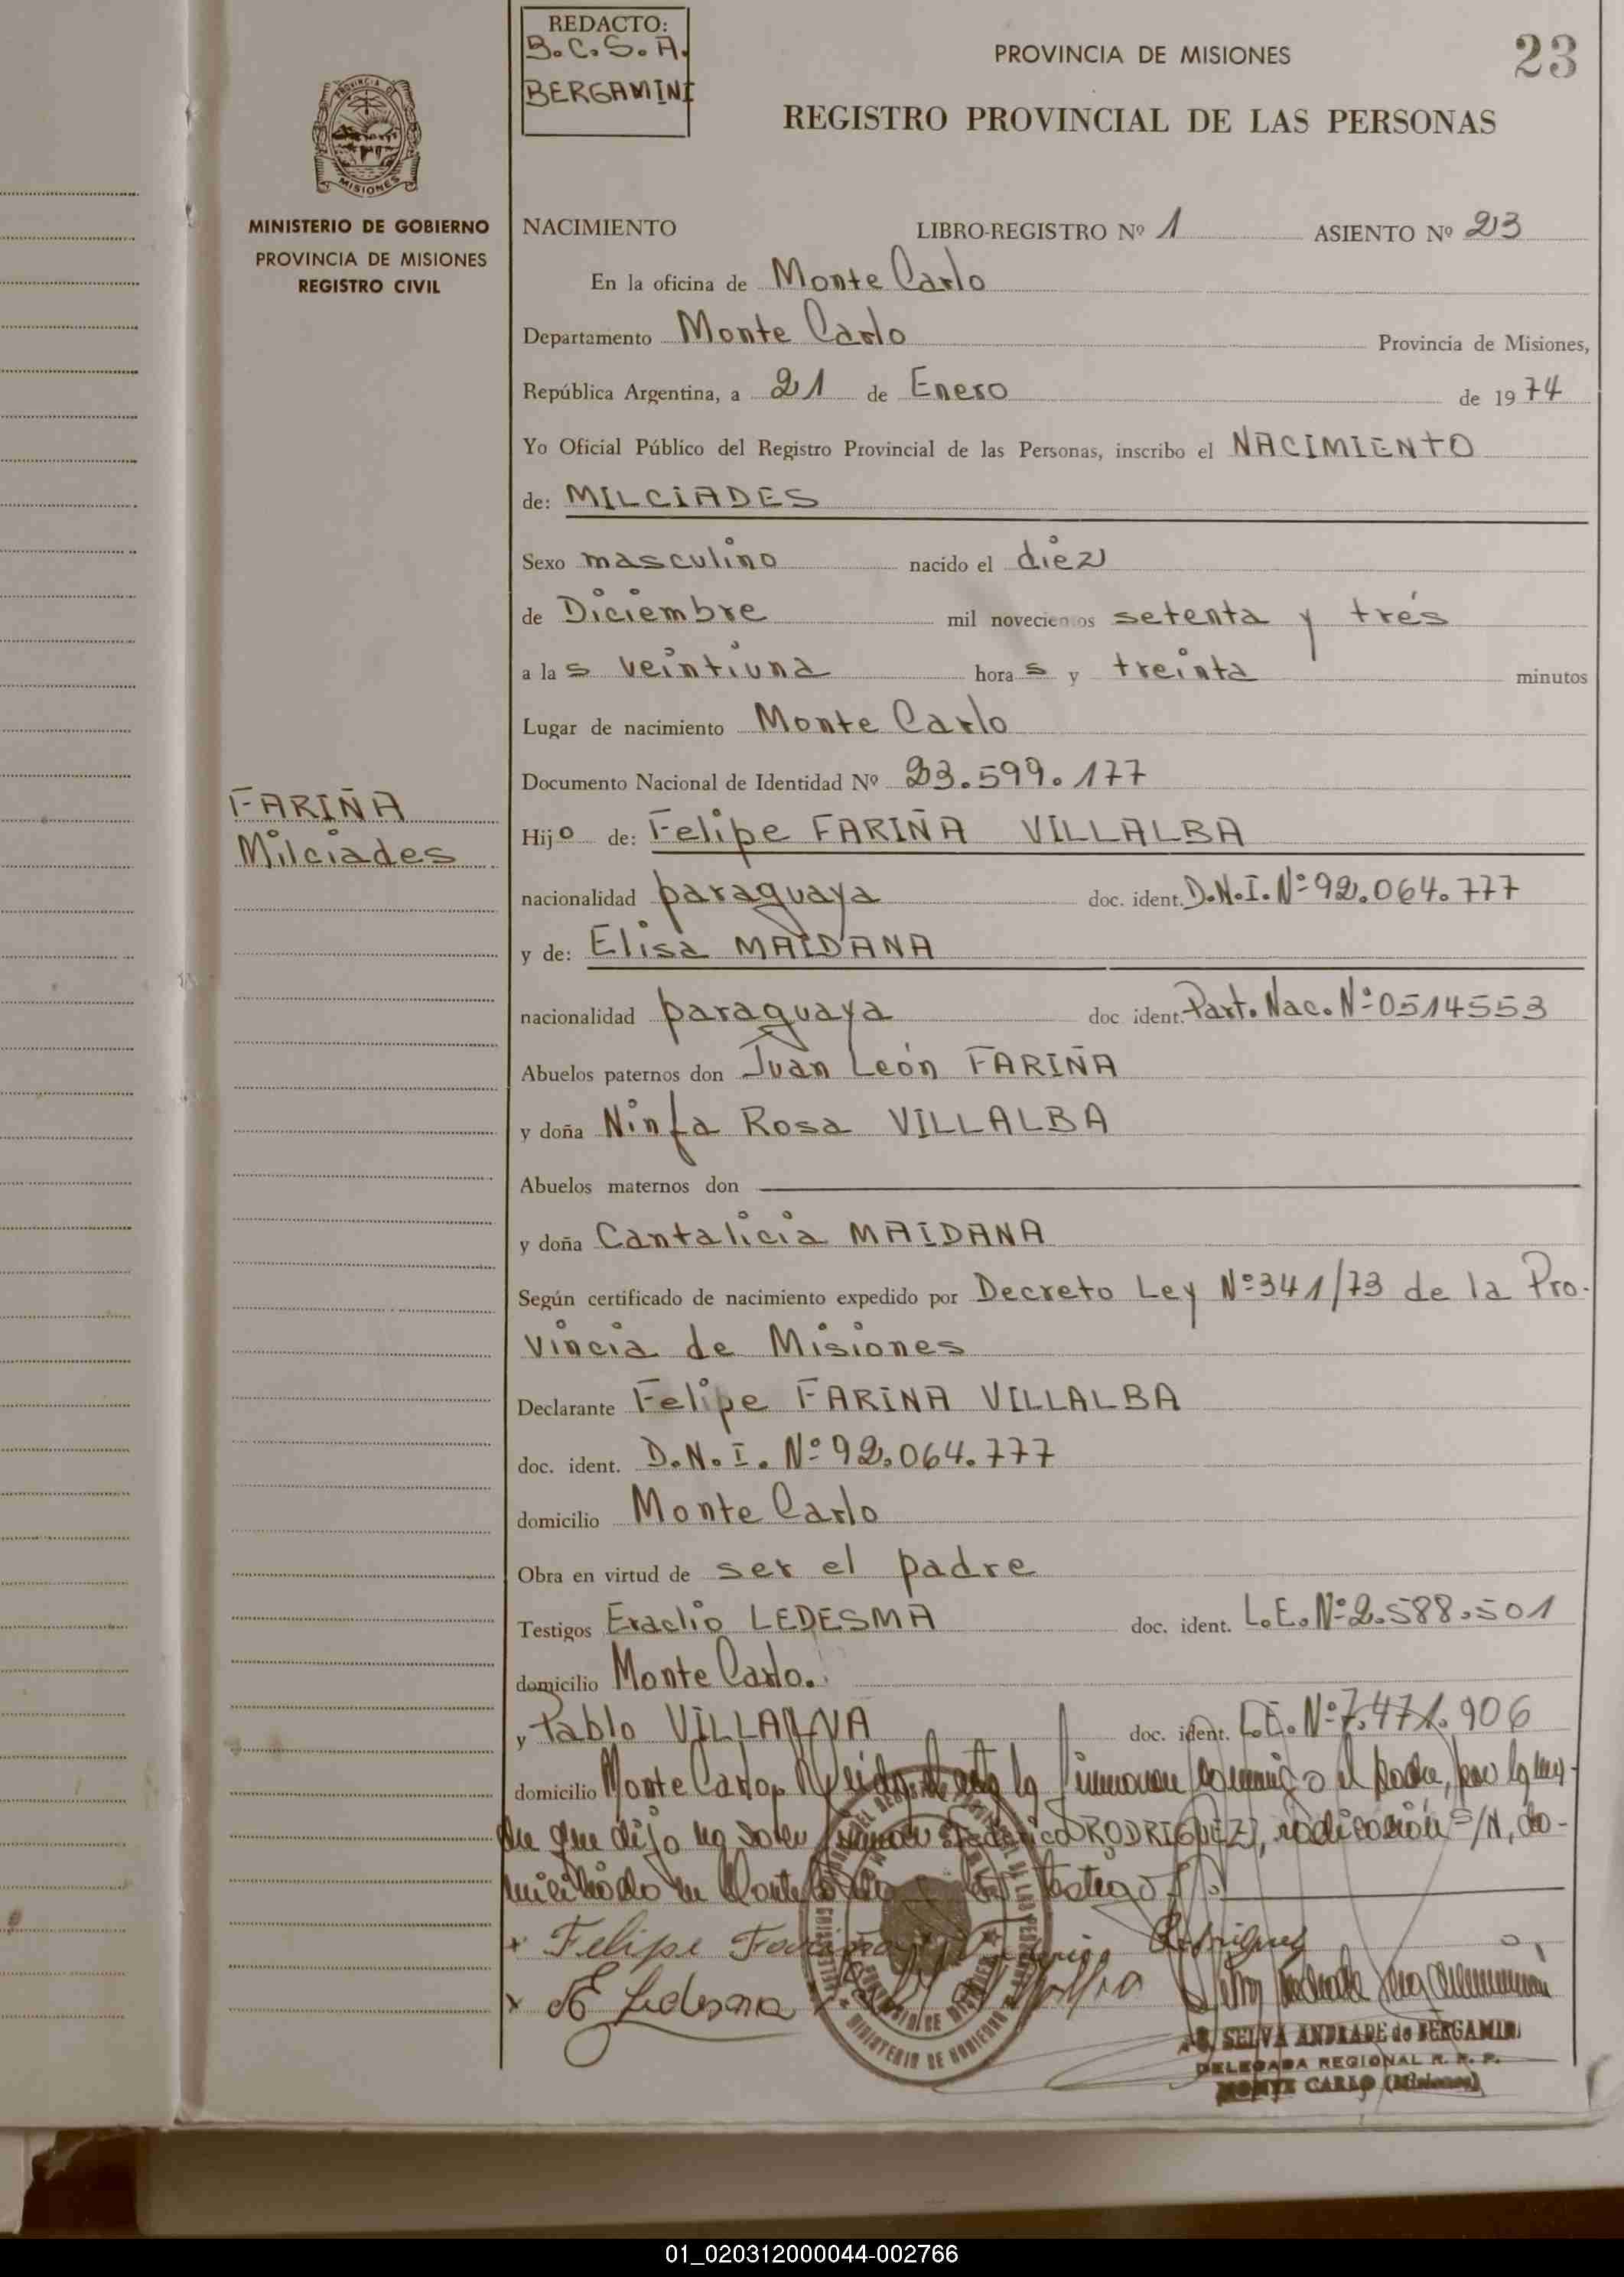 REDACTO:
B.C.S.A.
BERGAMINI
PROVINCIA DE MISIONES
23
REGISTRO PROVINCIAL DE LAS PERSONAS
PROVINCIA DE
MISIONES
MINISTERIO DE GOBIERNO
PROVINCIA DE MISIONES
REGISTRO CIVIL
NACIMIENTO LIBRO-REGISTRO Nº 1 ASIENTO Nº 23
En la oficina de Monte Carlo
Departamento Monte Carlo Provincia de Misiones,
República Argentina, a 21 de Enero de 1974
Yo Oficial Público del Registro Provincial de las Personas, inscribo el NACIMIENTO
de: MILCIADES
Sexo masculino nacido el diez
de Diciembre mil novecientos setenta y trés
a las veintiuna horas y treinta minutos
Lugar de nacimiento Monte Carlo
Documento Nacional de Identidad Nº 23.599.177
FARIÑA
Milciades
Hijo de: Felipe FARIÑA VILLALBA
nacionalidad paraguaya doc. ident. D.N.I. Nº 92.064.777
y de: Elisa MAIDANA
nacionalidad paraguaya doc ident. Part. Nac. Nº 0514553
Abuelos paternos don Juan León FARIÑA
y doña Ninfa Rosa VILLALBA
Abuelos maternos don
y doña Cantalicia MAIDANA
Según certificado de nacimiento expedido por Decreto Ley Nº 341/73 de la Pro-
vincia de Misiones
Declarante Felipe FARINA VILLALBA
doc. ident. D.N.I. Nº 92.064.777
domicilio Monte Carlo
Obra en virtud de ser el padre
Testigos Eraclio LEDESMA doc. ident. L.E. Nº 2.588.501
domicilio Monte Carlo.
y Pablo VILLALVA doc. ident. L.E. Nº 7.471.906
domicilio Monte Carlo, Leida el acta la firmaron conmigo el padre, por la ma-
dre que dijo no saber firmar Federico RODRIGUEZ, radicación S/N, do-
miciliado en Monte Carlo testigos
Felipe Fariña Rodriguez
E Ledesma
SELVA ANDRADE de BERGAMINI
DELEGADA REGIONAL R. P. P.
MONTE CARLO (Misiones)
MINISTERIO DE GOBIERNO
01_020312000044-002766